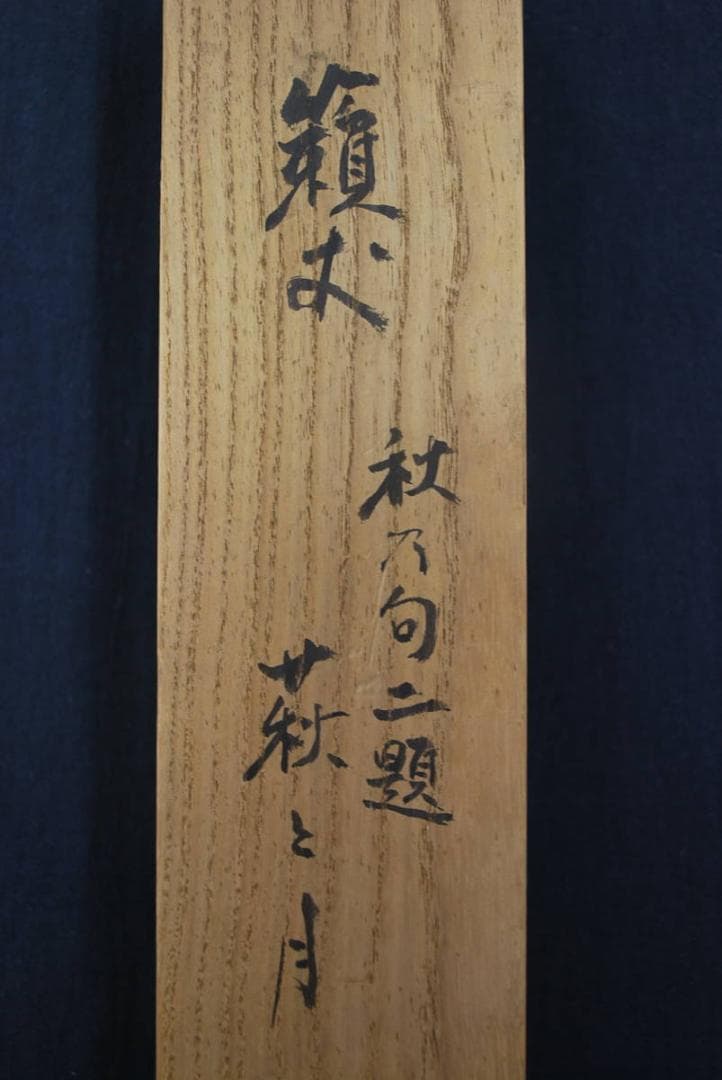 籟丈
秋乃句二題
萩と月